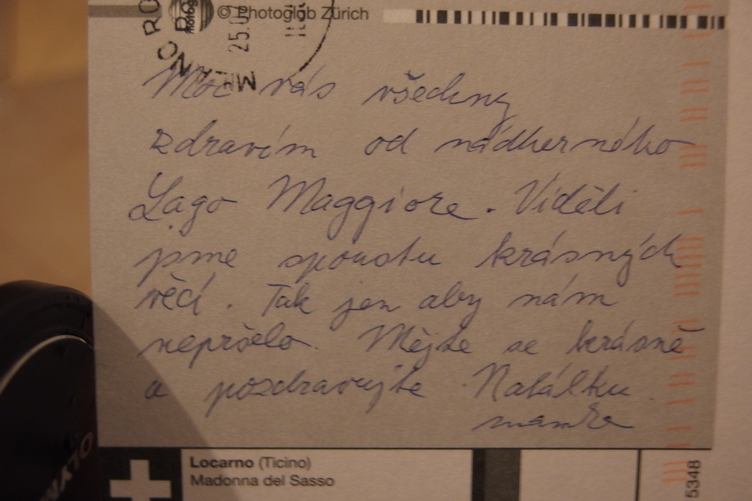 © Photoglob Zürich
25.0
Moc vás všechny
zdravím od nádherného
Lago Maggiore. Viděli
jsme spoustu krásných
věcí. Tak jen aby nám
nepršelo. Mějte se krásně
a pozdravujte Natálku.
mamka
Locarno (Ticino)
Madonna del Sasso
5348